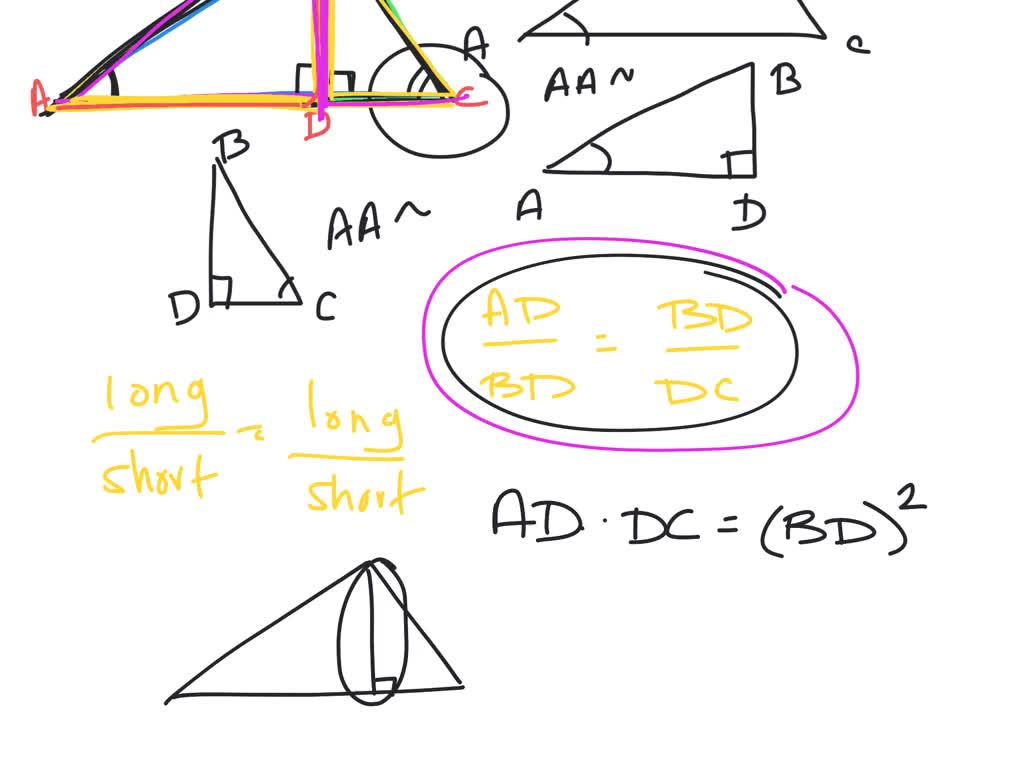 A
C
A
D
C
AA ~
B
A
D
B
D
C
AA ~
AD / BD = BD / DC
long / short = long / short
AD · DC = (BD)²